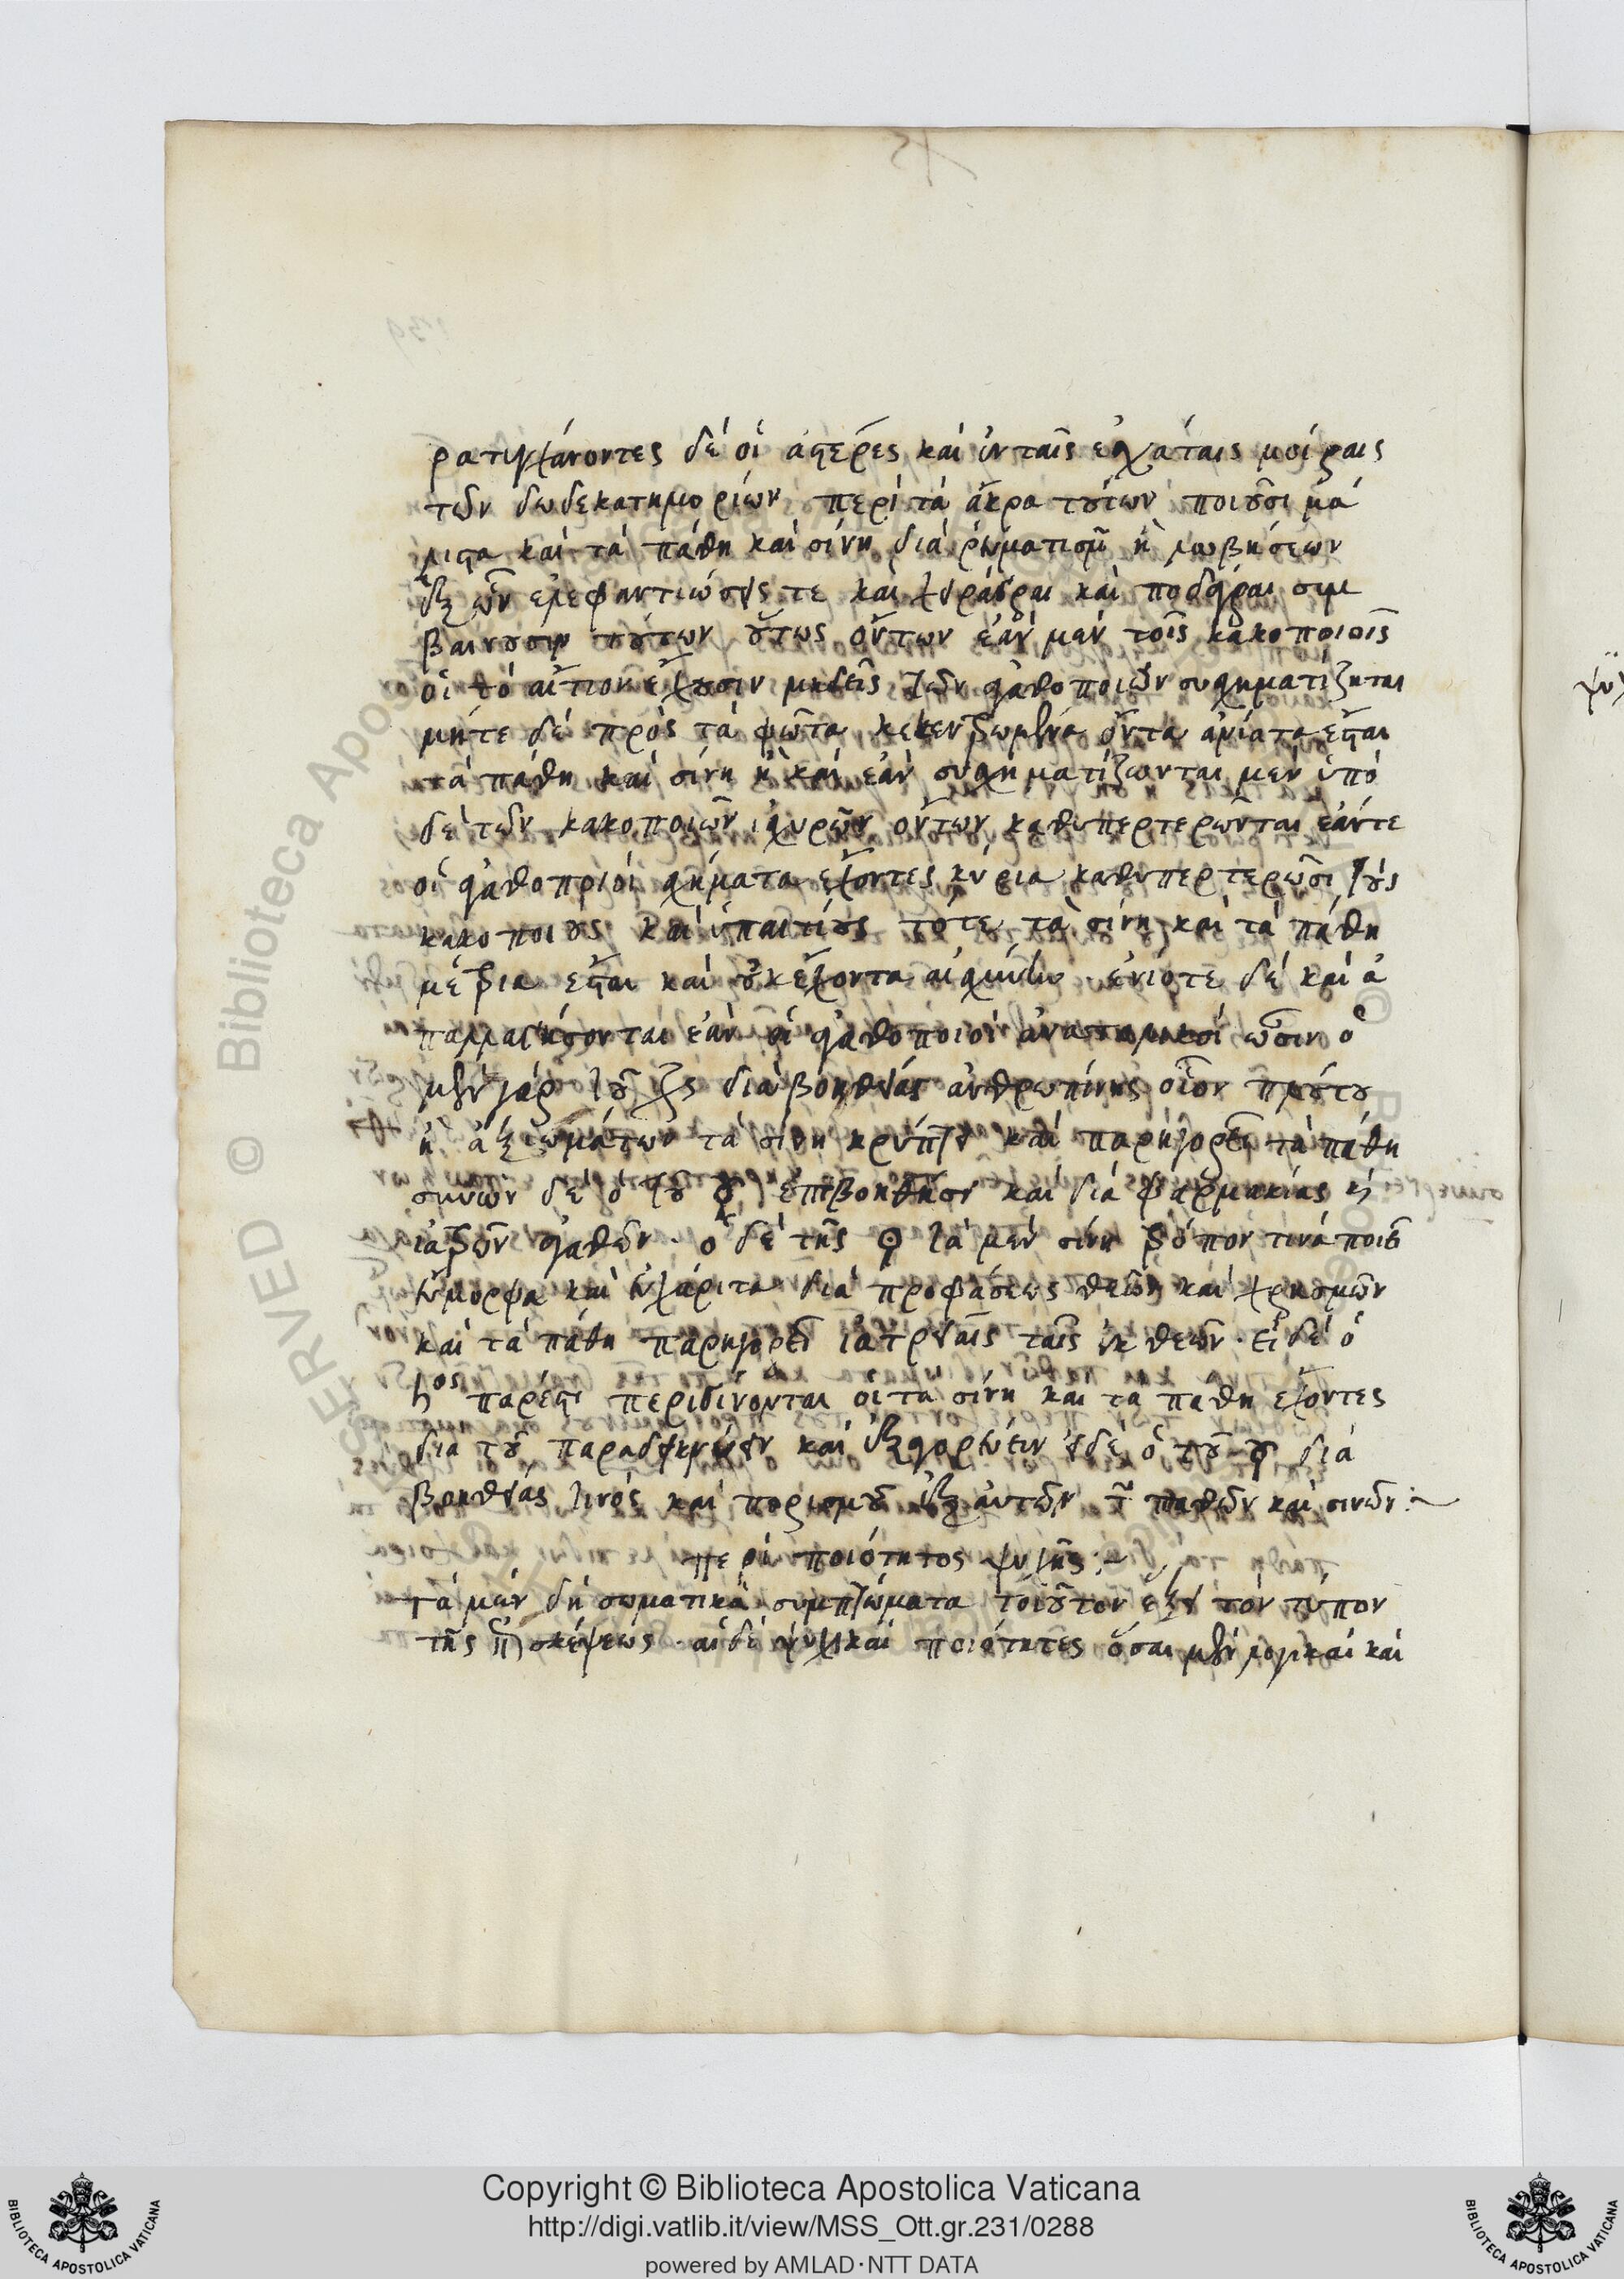 ρατυγχάνοντες δὲ οἱ ἀστέρες καὶ ἐν ταῖς ἐσχάταις μοίραις
τῶν δωδεκατημορίων περὶ τὰ ἄκρα τούτων ποιοῦσι μά
λιστα καὶ τὰ πάθη καὶ σίνη διὰ ρωματισμ ἢ λωβήσεων
ἐξ ὧν ἐλεφαντιώσεις τε καὶ χειράγραι καὶ ποδάγραι συμ
βαίνουσιν τούτων οὕτως ὄντων ἐὰν μὲν τοῖς κακοποιοῖς
οἳ τὸ αἴτιον ἔχουσιν μηδεὶς τῶν ἀγαθοποιῶν συσχηματίζηται
μήτε δὲ πρὸς τὰ φῶτα κεκεντρωμένα ὄντα ἀνίατα ἔσται
τὰ πάθη καὶ σίνη ἢ καὶ ἐὰν συσχηματίζωνται μὲν ὑπὸ
δὲ τῶν κακοποιῶν ἰσχυρῶν ὄντων καθυπερτερῶνται ἐάν τε
οἱ ἀγαθοποιοὶ σχήματα ἔχοντες κύρια καθυπερτερῶσι τοὺς
κακοποιοὺς καὶ ὑπαιτίους τότε τὰ σίνη καὶ τὰ πάθη
μέτρια ἔσται καὶ οὐκ ἔχοντα αἰσχύνην ἐνίοτε δὲ καὶ ἀ
παλλαγήσονται ἐὰν οἱ ἀγαθοποιοὶ ἀνατολικοὶ ὦσιν ὁ
μὲν γὰρ τοῦ ♃ς διὰ βοηθείας ἀνθρωπίνης οἷον πλούτου
ἢ ἀξιωμάτων τὰ σίνη κρύπτει καὶ παρηγορεῖ τὰ πάθη
συνὼν δὲ ὁ τοῦ ☿ ἐπιβοηθήσει καὶ διὰ φαρμακίας ἢ
ἰατρῶν ἀγαθῶν · ὁ δὲ τῆς ♀ τὰ μὲν σίνη τρόπον τινὰ ποιεῖ
εὔμορφα καὶ εὐχάριτα διὰ προφάσεως θεῶν καὶ χρησμῶν
καὶ τὰ πάθη παρηγορεῖ ἰατρείαις ταῖς ἐκ θεῶν · εἰ δὲ ὁ
♄ος παρέσται περιδίνονται οἱ τὰ σίνη καὶ τὰ πάθη ἔχοντες
διὰ τοῦ παραδεικνύειν καὶ ἐξαγορεύειν εἰ δὲ ὁ τοῦ ☿ διὰ
βοηθείας τινὸς καὶ πορισμοῦ ἐξ αὐτῶν τ παθῶν καὶ σινῶν :~
Περὶ ποιότητος ψυχῆς :~
Τὰ μὲν δὴ σωματικὰ συμπτώματα τοιοῦτον ἔχει τὸν τύπον
τῆς ἐπισκέψεως · αἱ δὲ ψυχικαὶ ποιότητες ὅσαι μὲν λογικαὶ καὶ
Copyright © Biblioteca Apostolica Vaticana
http://digi.vatlib.it/view/MSS_Ott.gr.231/0288
powered by AMLAD·NTT DATA